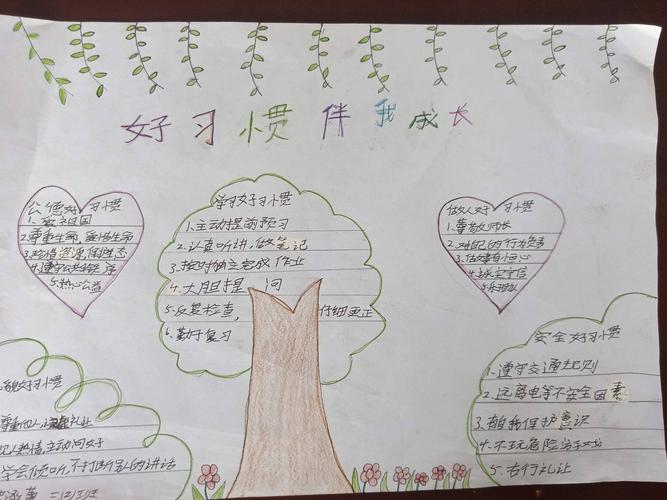 好习惯伴我成长
公德好习惯
1.爱祖国
2.尊重生命,爱惜生命
3.珍惜资源,保护生态
4.遵守公共秩序
5.热心公益
学习好习惯
1.主动提前预习
2.认真听讲,做笔记
3.按时独立完成作业
4.大胆提问
5.反复检查,仔细更正
6.勤于复习
做人好习惯
1.尊敬师长
2.对自己的行为负责
3.做事有恒心
4.诚实守信
安全好习惯
1.遵守交通规则
2.远离电等不安全因素
3.自我保护意识
4.不玩危险游戏
5.右行礼让
貌好习惯
尊重他人
热情主动问好
学会倾听,不打断别人的讲话
二(2)班